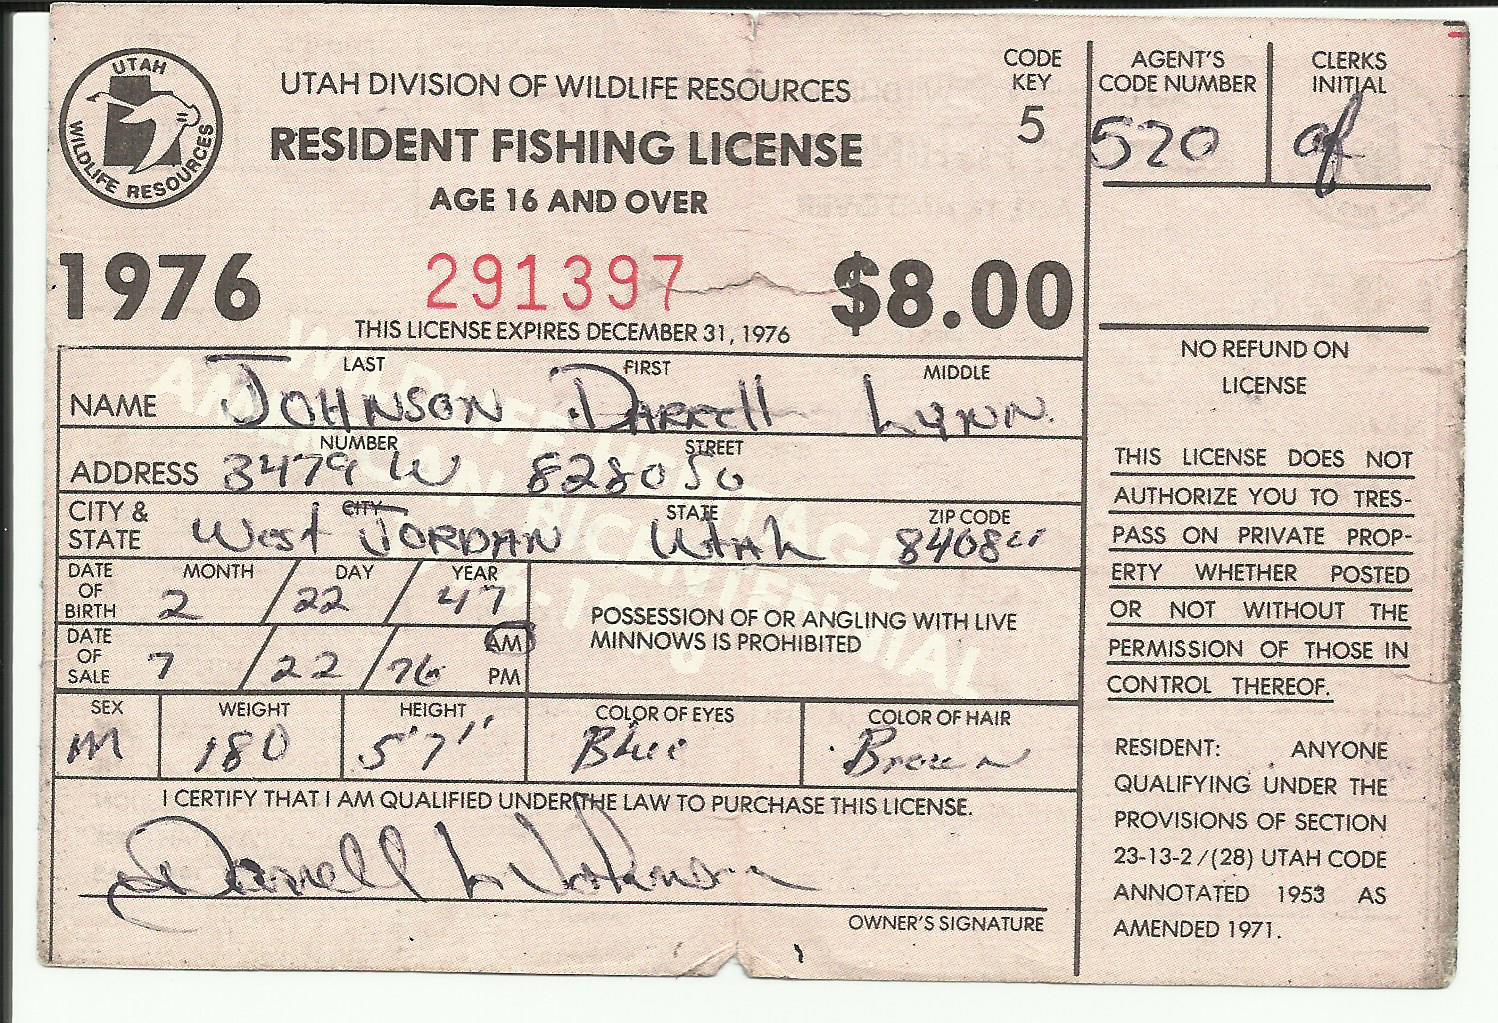 UTAH
WILDLIFE RESOURCES
UTAH DIVISION OF WILDLIFE RESOURCES
RESIDENT FISHING LICENSE
AGE 16 AND OVER
CODE KEY 5
AGENT'S CODE NUMBER 520
CLERKS INITIAL
1976 291397 $8.00
THIS LICENSE EXPIRES DECEMBER 31, 1976
WILDLIFE HERITAGE
AMERICAN BICENTENNIAL
LAST FIRST MIDDLE
NAME JOHNSON DARRELL LYNN.
NUMBER STREET
ADDRESS 3479 W 8280 SO
CITY & STATE CITY STATE ZIP CODE
West JORDAN UTAH 84084
DATE OF BIRTH MONTH DAY YEAR
2 / 22 / 47
DATE OF SALE 7 / 22 / 76 AM PM
POSSESSION OF OR ANGLING WITH LIVE
MINNOWS IS PROHIBITED
SEX WEIGHT HEIGHT COLOR OF EYES COLOR OF HAIR
M 180 5'7" Blue Brown
I CERTIFY THAT I AM QUALIFIED UNDER THE LAW TO PURCHASE THIS LICENSE.
Darrell L Johnson
OWNER'S SIGNATURE
NO REFUND ON
LICENSE
THIS LICENSE DOES NOT
AUTHORIZE YOU TO TRES-
PASS ON PRIVATE PROP-
ERTY WHETHER POSTED
OR NOT WITHOUT THE
PERMISSION OF THOSE IN
CONTROL THEREOF.
RESIDENT: ANYONE
QUALIFYING UNDER THE
PROVISIONS OF SECTION
23-13-2/(28) UTAH CODE
ANNOTATED 1953 AS
AMENDED 1971.